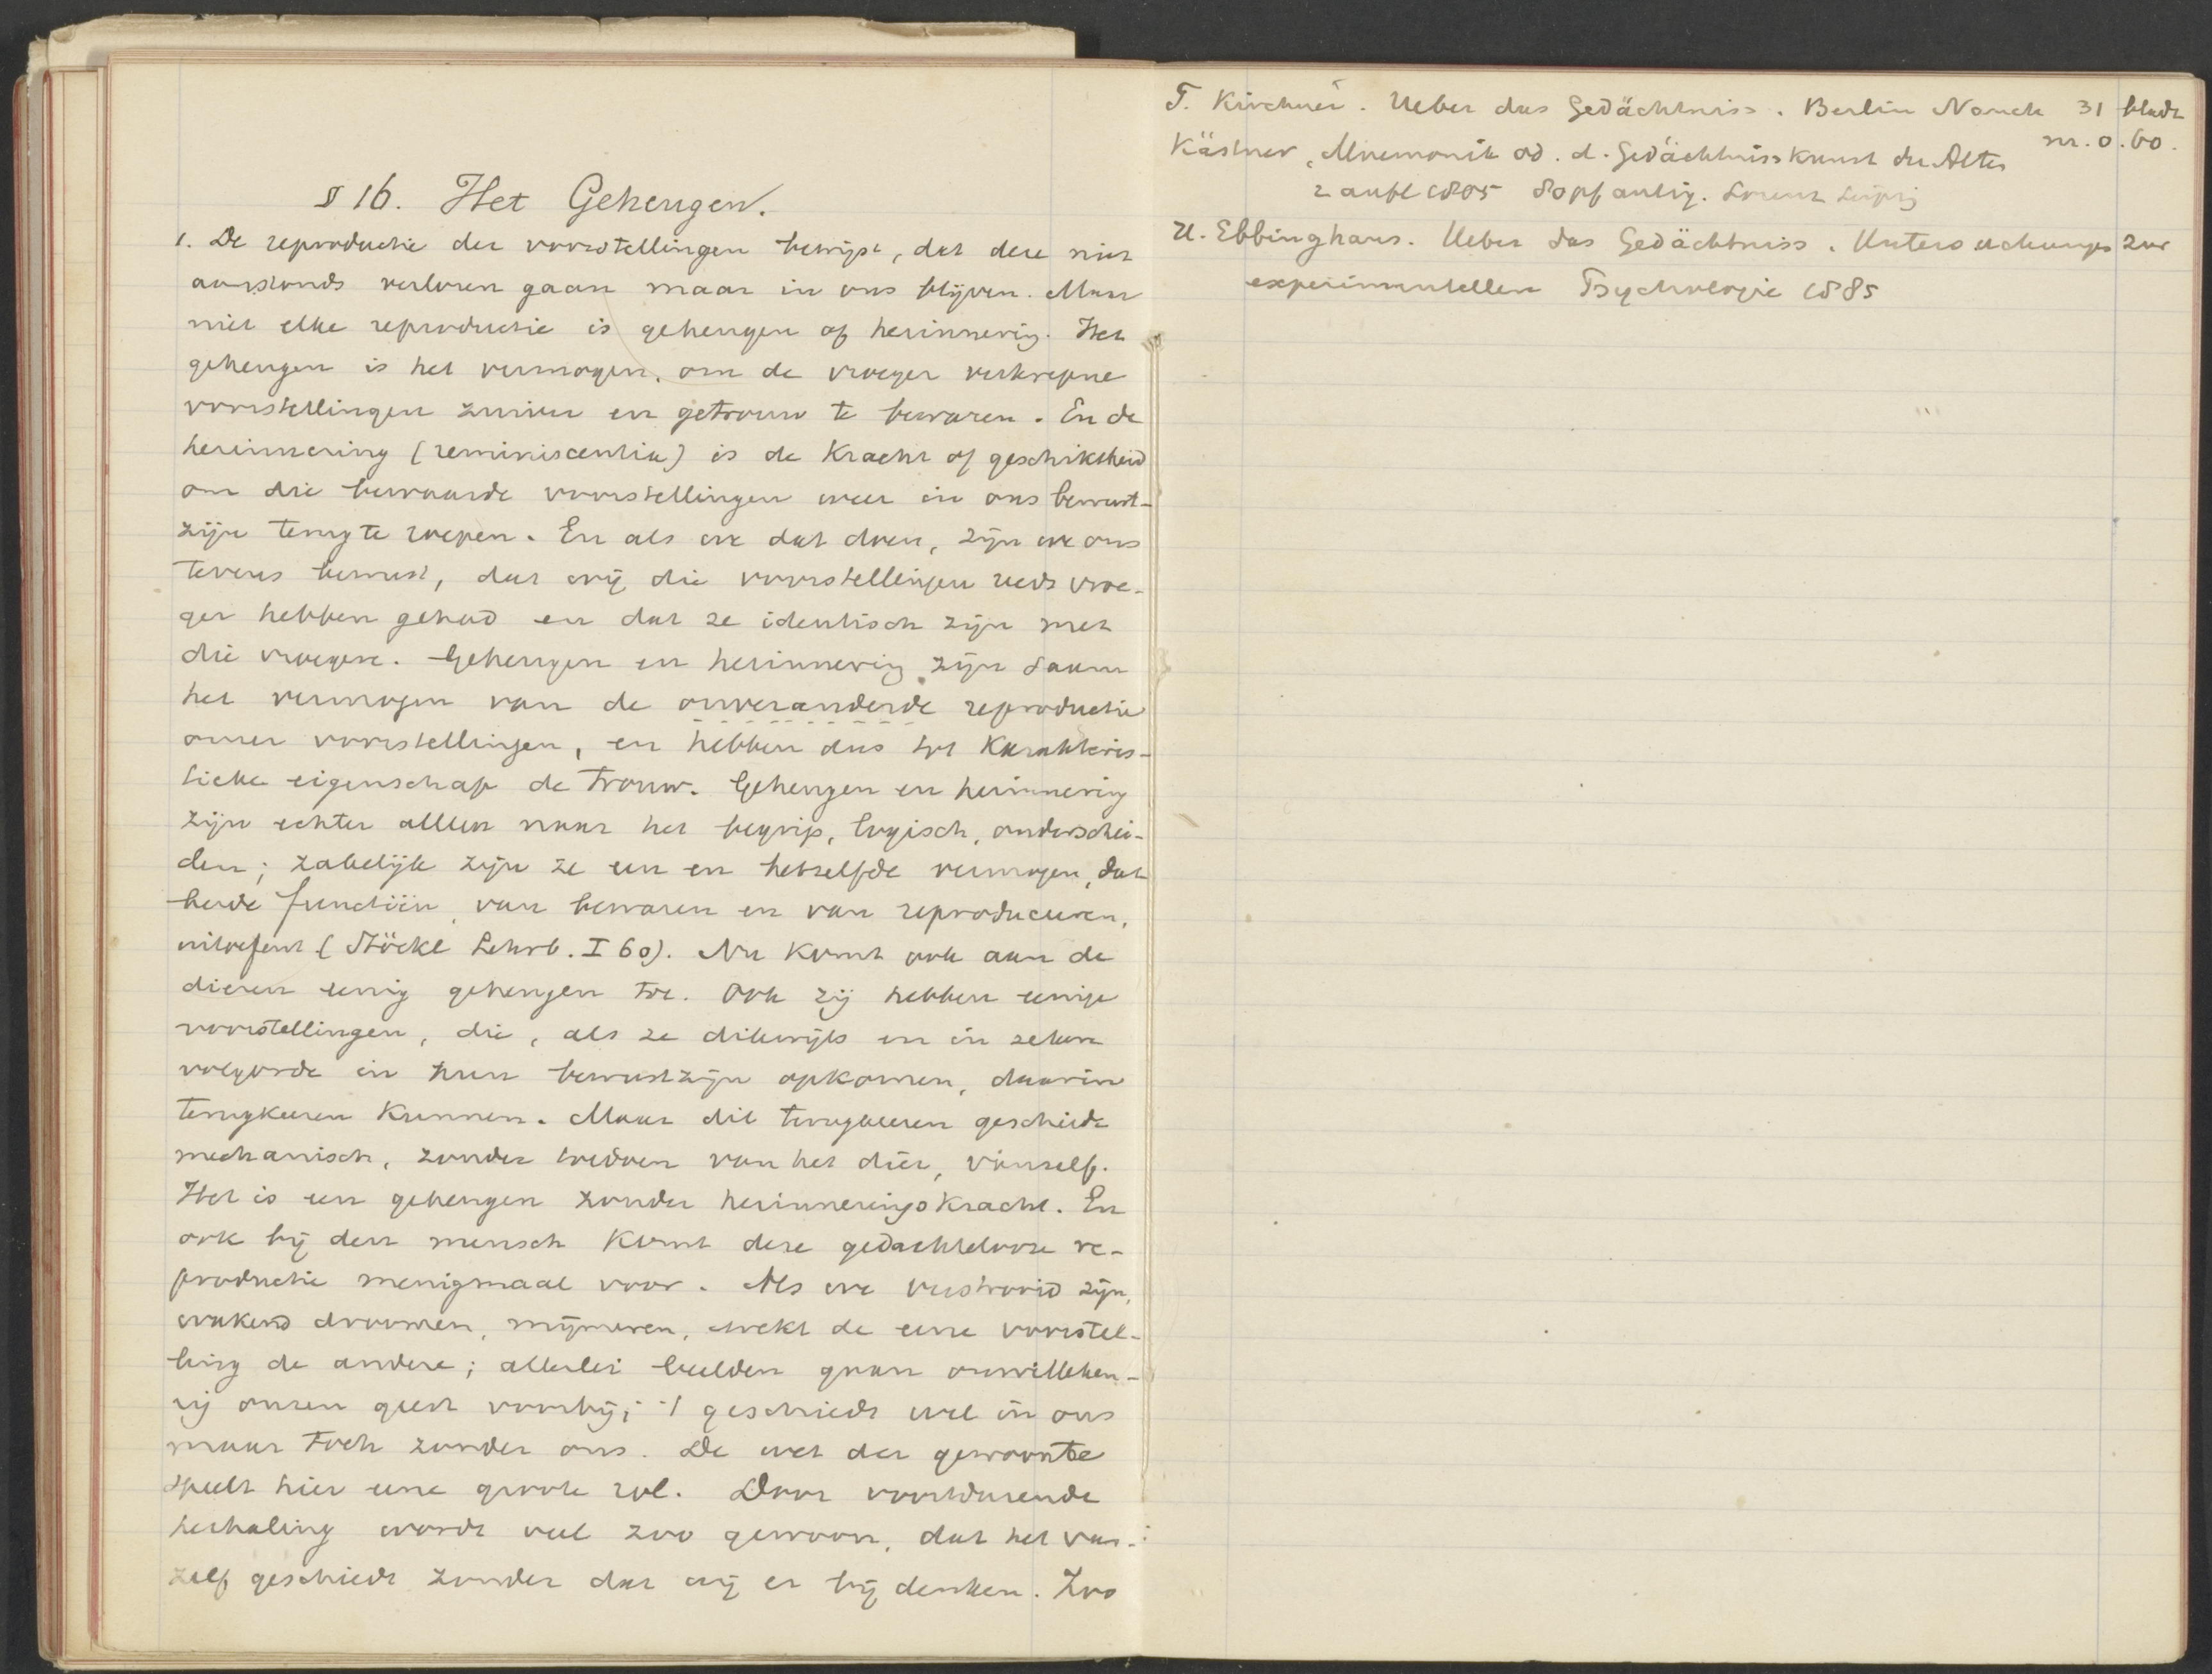 § 16. Het Geheugen.
1. De reproductie der voorstellingen bewijst, dat deze niet
aanstonds verloren gaan maar in ons blijven. Maar
niet elke reproductie is geheugen of herinnering. Het
geheugen is het vermogen, om de vroeger verkregene
voorstellingen zuiver en getrouw te bewaren. En de
herinnering (reminiscentia) is de kracht of geschiktheid
om die bewaarde voorstellingen weer in ons bewust-
zijn terug te roepen. En als we dat doen, zijn we ons
tevens bewust, dat wij die voorstellingen reeds vroe-
ger hebben gehad en dat ze identisch zijn met
die vroegere. Geheugen en herinnering zijn saam
het vermogen van de onveranderde reproductie
onzer voorstellingen, en hebben dus tot karakteris-
tieke eigenschap de trouw. Geheugen en herinnering
zijn echter alleen naar het begrip, logisch, onderschei-
den; zakelijk zijn ze een en hetzelfde vermogen, dat
beide functiën, van bewaren en van reproduceeren,
uitoefent (Stöckl Lehrb. I 60). Nu komt ook aan de
dieren eenig geheugen toe. Ook zij hebben eenige
voorstellingen, die, als ze dikwijls en in zekere
volgorde in hun bewustzijn opkomen, daarin
terugkeeren kunnen. Maar dit terugkeeren geschiedt
mechanisch, zonder toedoen van het dier, vanzelf.
Het is een geheugen zonder herinneringskracht. En
ook bij den mensch komt deze gedachtelooze re-
productie menigmaal voor. Als we verstrooid zijn,
wakend droomen, mijmeren, wekt de eene voorstel-
ling de andere; allerlei beelden gaan onwilleken-
rij onzen geest voorbij; 't geschiedt wel in ons
maar toch zonder ons. De wet der gewoonte
speelt hier eene groote rol. Door voortdurende
herhaling wordt veel zoo gewoon, dat het van-
zelf geschiedt zonder dat wij er bij denken. Zoo
F. Kirchner. Ueber das Gedächtniss. Berlin Nauck 31 bladz
m. 0.60.
Kästner, Mnemonik od. d. Gedächtnisskunst der Alten
2 aufl 1805 Lorenz Leipzig
H. Ebbinghaus. Ueber das Gedächtniss. Untersuchungen zur
experimentellen Psychologie 1885